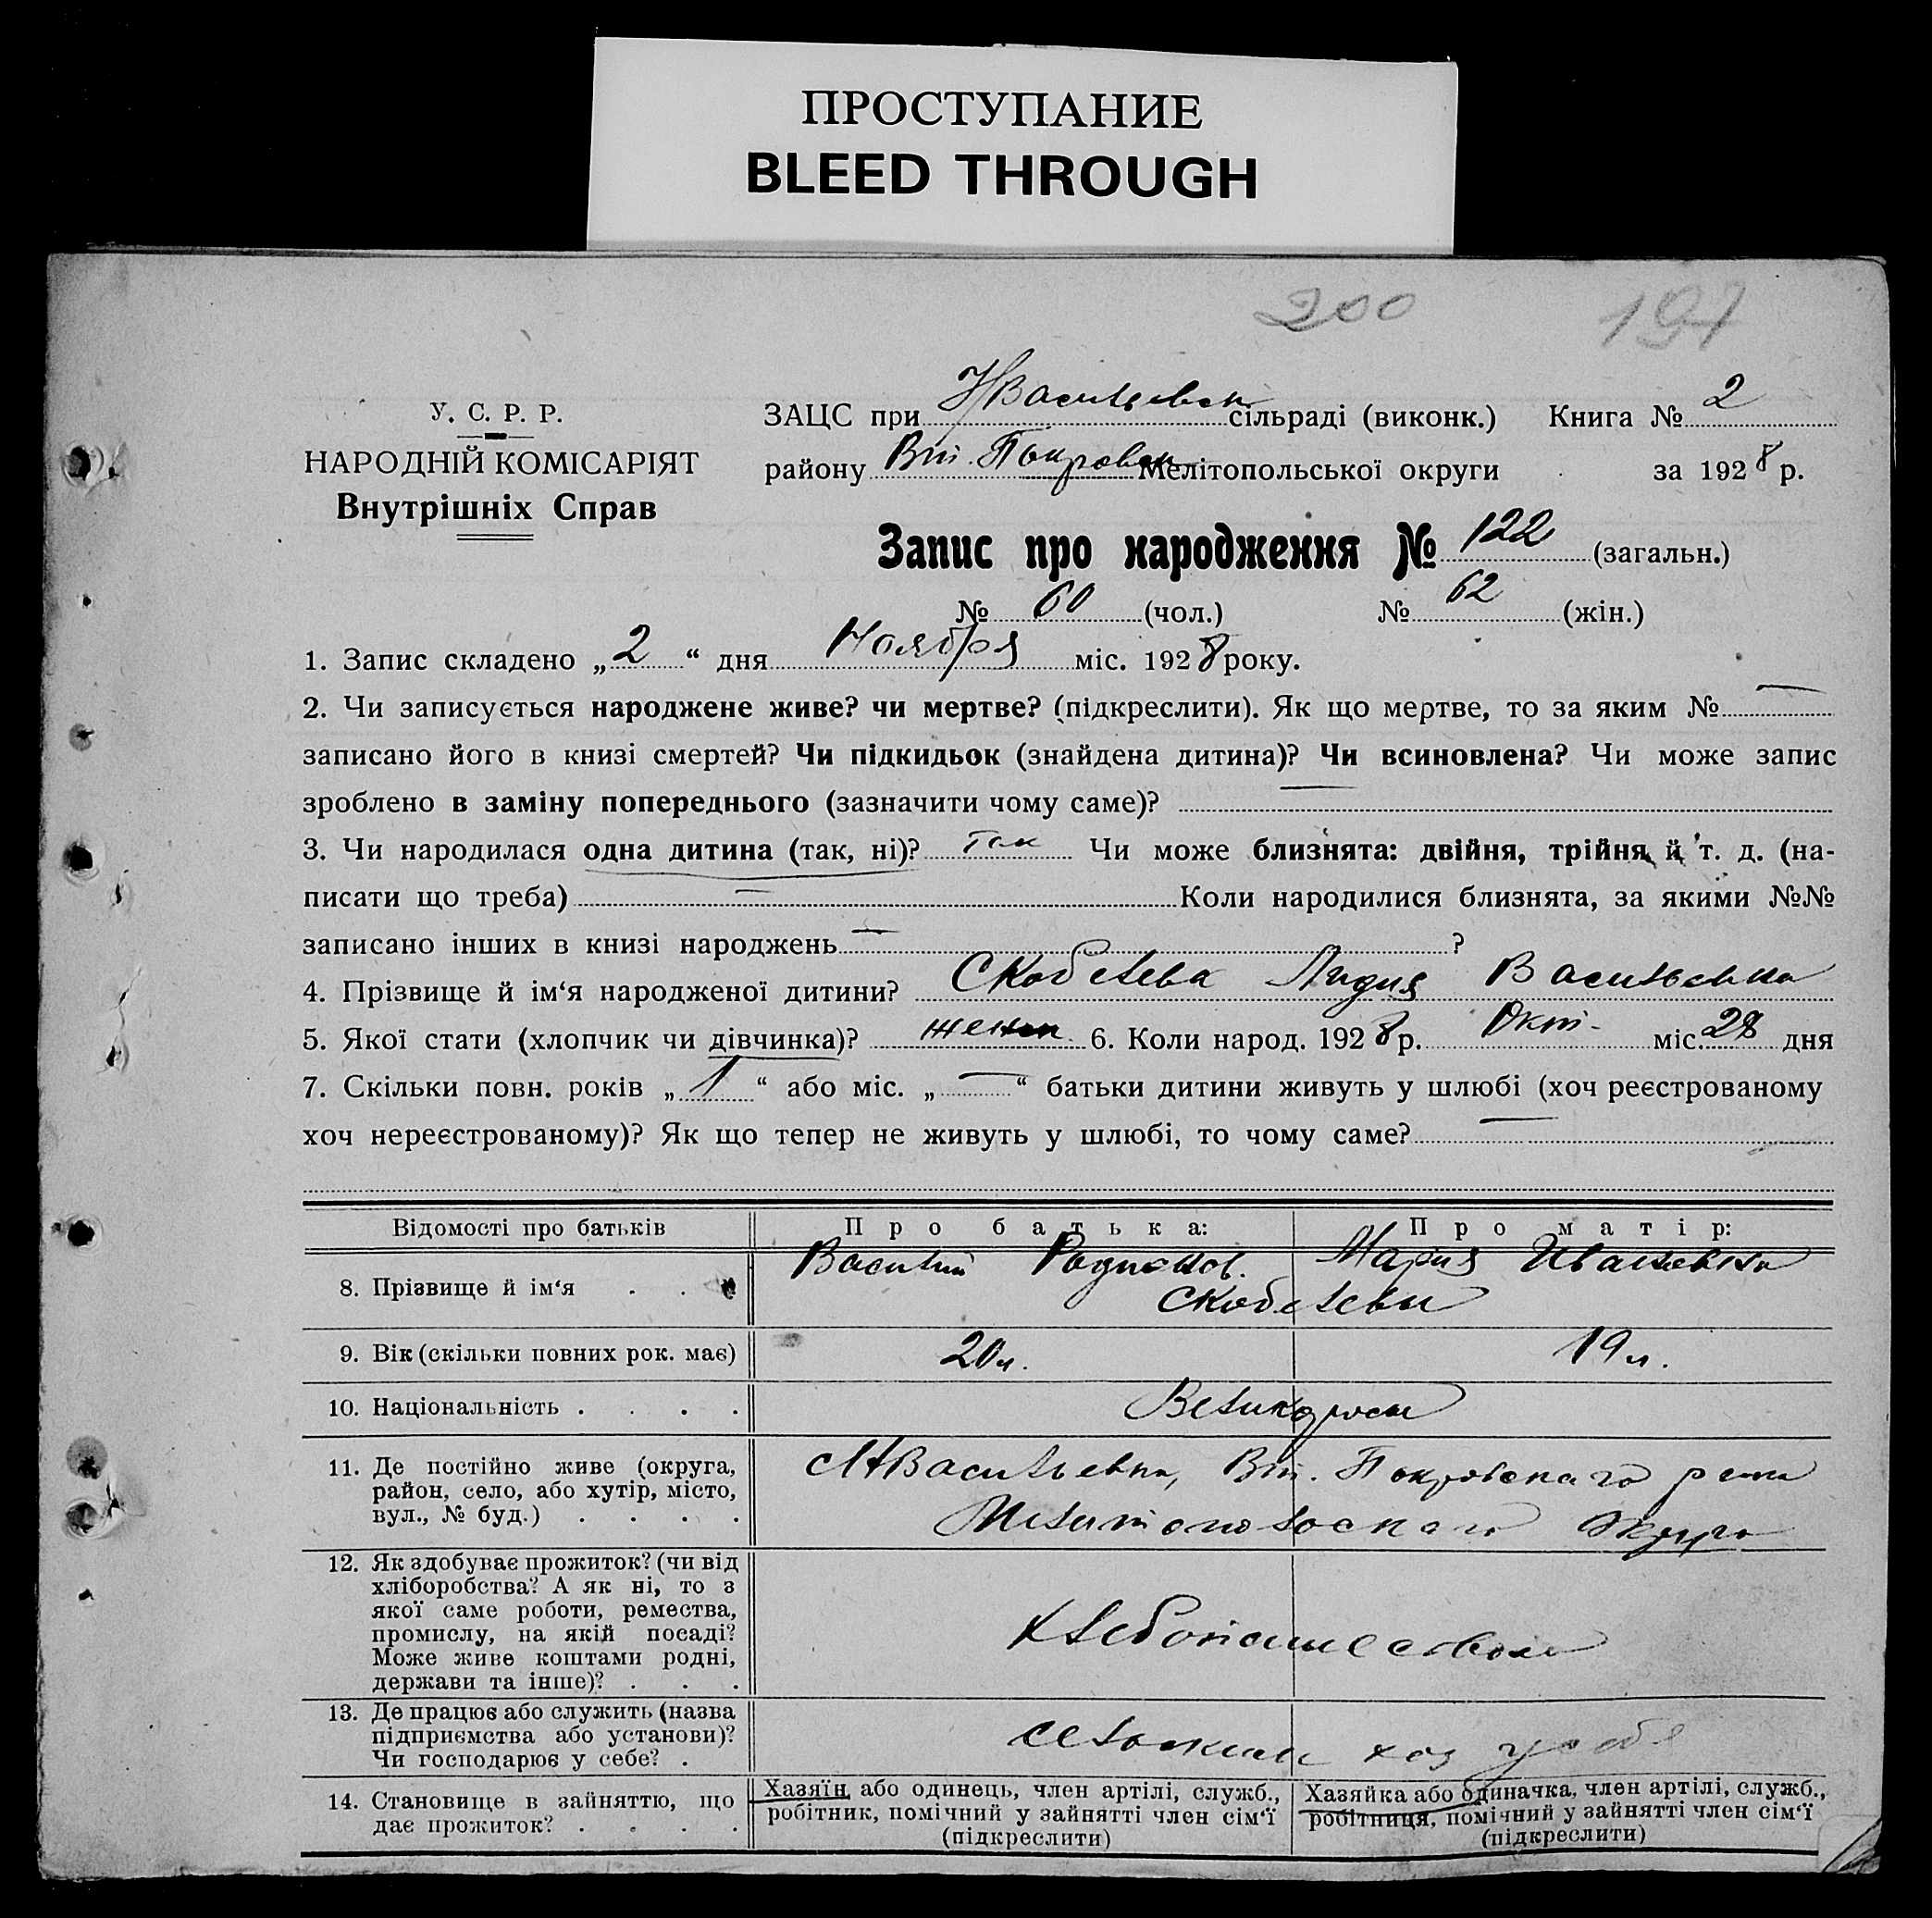 ПРОСТУПАНИЕ
BLEED THROUGH
200 197
У. С. Р. Р.
НАРОДНІЙ КОМІСАРІЯТ
Внутрішніх Справ
ЗАЦС при НВасильевск сільраді (виконк.) Книга № 2
району Вт. Покровск Мелітопольської округи за 1928 р.
Запис про народження № 122 (загальн.)
№ 60 (чол.) № 62 (жін.)
1. Запис складено „2“ дня Ноября міс. 1928 року.
2. Чи записується народжене живе? чи мертве? (підкреслити). Як що мертве, то за яким № —
записано його в книзі смертей? Чи підкидьок (знайдена дитина)? Чи всиновлена? Чи може запис
зроблено в заміну попереднього (зазначити чому саме)? —
3. Чи народилася одна дитина (так, ні)? так Чи може близнята: двійня, трійня й т. д. (на-
писати що треба) — Коли народилися близнята, за якими №№
записано інших в книзі народжень — ?
4. Прізвище й ім‘я народженої дитини? Скобелева Лидия Васильевна
5. Якої стати (хлопчик чи дівчинка)? женск. 6. Коли народ. 1928 р. Окт- міс. 28 дня
7. Скільки повн. років „1“ або міс. „—“ батьки дитини живуть у шлюбі (хоч реєстрованому
хоч нереєстрованому)? Як що тепер не живуть у шлюбі, то чому саме? —
Відомості про батьків Про батька: Про матір:
8. Прізвище й ім‘я Василий Родионов. Мария Ивановна
Скобелевы
9. Вік (скільки повних рок. має) 20 л. 19 л.
10. Національність Великоросы
11. Де постійно живе (округа, район, село, або хутір, місто, вул., № буд.) с НВасильевка, Вт. Покровскаго рена
Мелитопольскаго Округа
12. Як здобуває прожиток? (чи від
хліборобства? А як ні, то з
якої саме роботи, ремества,
промислу, на якій посаді?
Може живе коштами родні,
держави та інше)? Хлебопашеством
13. Де працює або служить (назва
підприємства або установи)?
Чи господарює у себе? сельским хоз у себе
14. Становище в зайняттю, що
дає прожиток?
Хазяїн, або одинець, член артілі, служб.,
робітник, помічний у зайнятті член сім‘ї
(підкреслити)
Хазяйка або одиначка, член артілі, служб.,
робітниця, помічний у зайнятті член сім‘ї
(підкреслити)